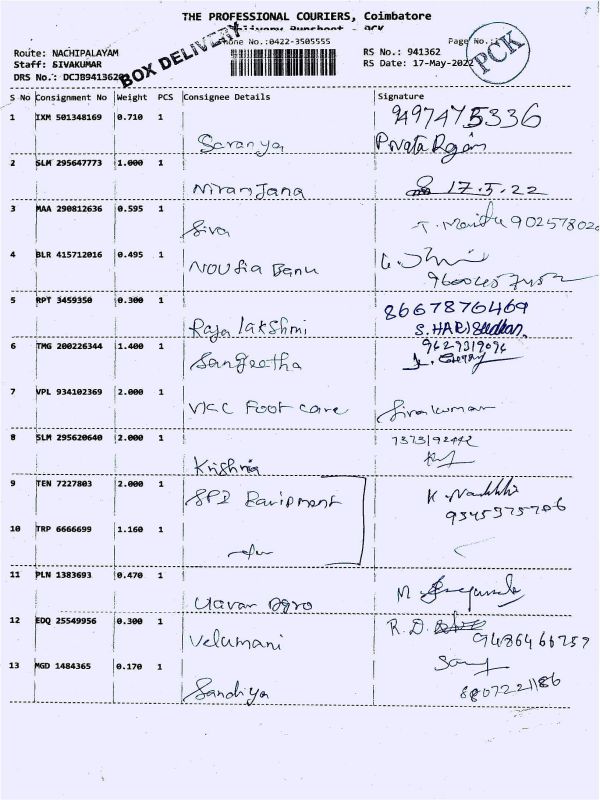 THE PROFESSIONAL COURIERS, Coimbatore
Delivery Runsheet - PCK
BOX DELIVERY
Phone No.:0422-3505555
Page No.:
PCK
Route: NACHIPALAYAM
RS No.: 941362
Staff: SIVAKUMAR
RS Date: 17-May-2022
DRS No.: DCJB9413620
S No Consignment No Weight PCS Consignee Details Signature
1 IXM 501348169 0.710 1 Saranya 9497475336
2 SLM 295647773 1.000 1 Niranjana 17.5.22
3 MAA 290812636 0.595 1 Siva
4 BLR 415712016 0.495 1 Noufia Banu
5 RPT 3459350 0.300 1 Raja lakshmi 8667876469
6 TMG 200226344 1.400 1 Sangeetha 9629319096
7 VPL 934102369 2.000 1 VKC Foot care Sivakumar
8 SLM 295620640 2.000 1 Krishna
9 TEN 7227803 2.000 1 SPI Equipment
10 TRP 6666699 1.160 1
11 PLN 1383693 0.470 1
12 EDQ 25549956 0.300 1 Velumani R.D. 9486466259
13 MGD 1484365 0.170 1 Sandiya 8807221186